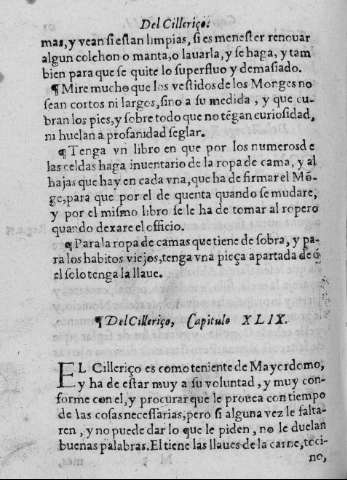 Del Cilleriço.
mas, y vean si estan limpias, si es menester renouar
algun colchon o manta, o lauarla, y se haga, y tam
bien para que se quite lo superfluo y demasiado.
¶ Mire mucho que los vestidos de los Mõges no
sean cortos ni largos, sino a su medida, y que cu-
bran los pies, y sobre todo que no tẽgan curiosidad,
ni huelan a profanidad seglar.
¶ Tenga vn libro en que por los numeros de
las celdas haga inuentario de la ropa de cama, y al
hajas que hay en cada vna, que ha de firmar el Mõ-
ge, para que por el de quenta quando se mudare,
y por el mismo libro se le ha de tomar al ropero
quando dexare el officio.
¶ Para la ropa de camas que tiene de sobra, y pa-
ra los habitos viejos, tenga vna pieça apartada de q̃
el solo tenga la llaue.
¶ Del Cilleriço, Capitulo XLIX.
EL Cilleriço es como teniente de Mayordomo,
y ha de estar muy a su voluntad, y muy con-
forme con el, y procurar que le prouea con tiempo
de las cosas necessarias, pero si alguna vez le falta-
ren, y no puede dar lo que le piden, no le duelan
buenas palabras. El tiene las llaues de la carne, toci-
no,